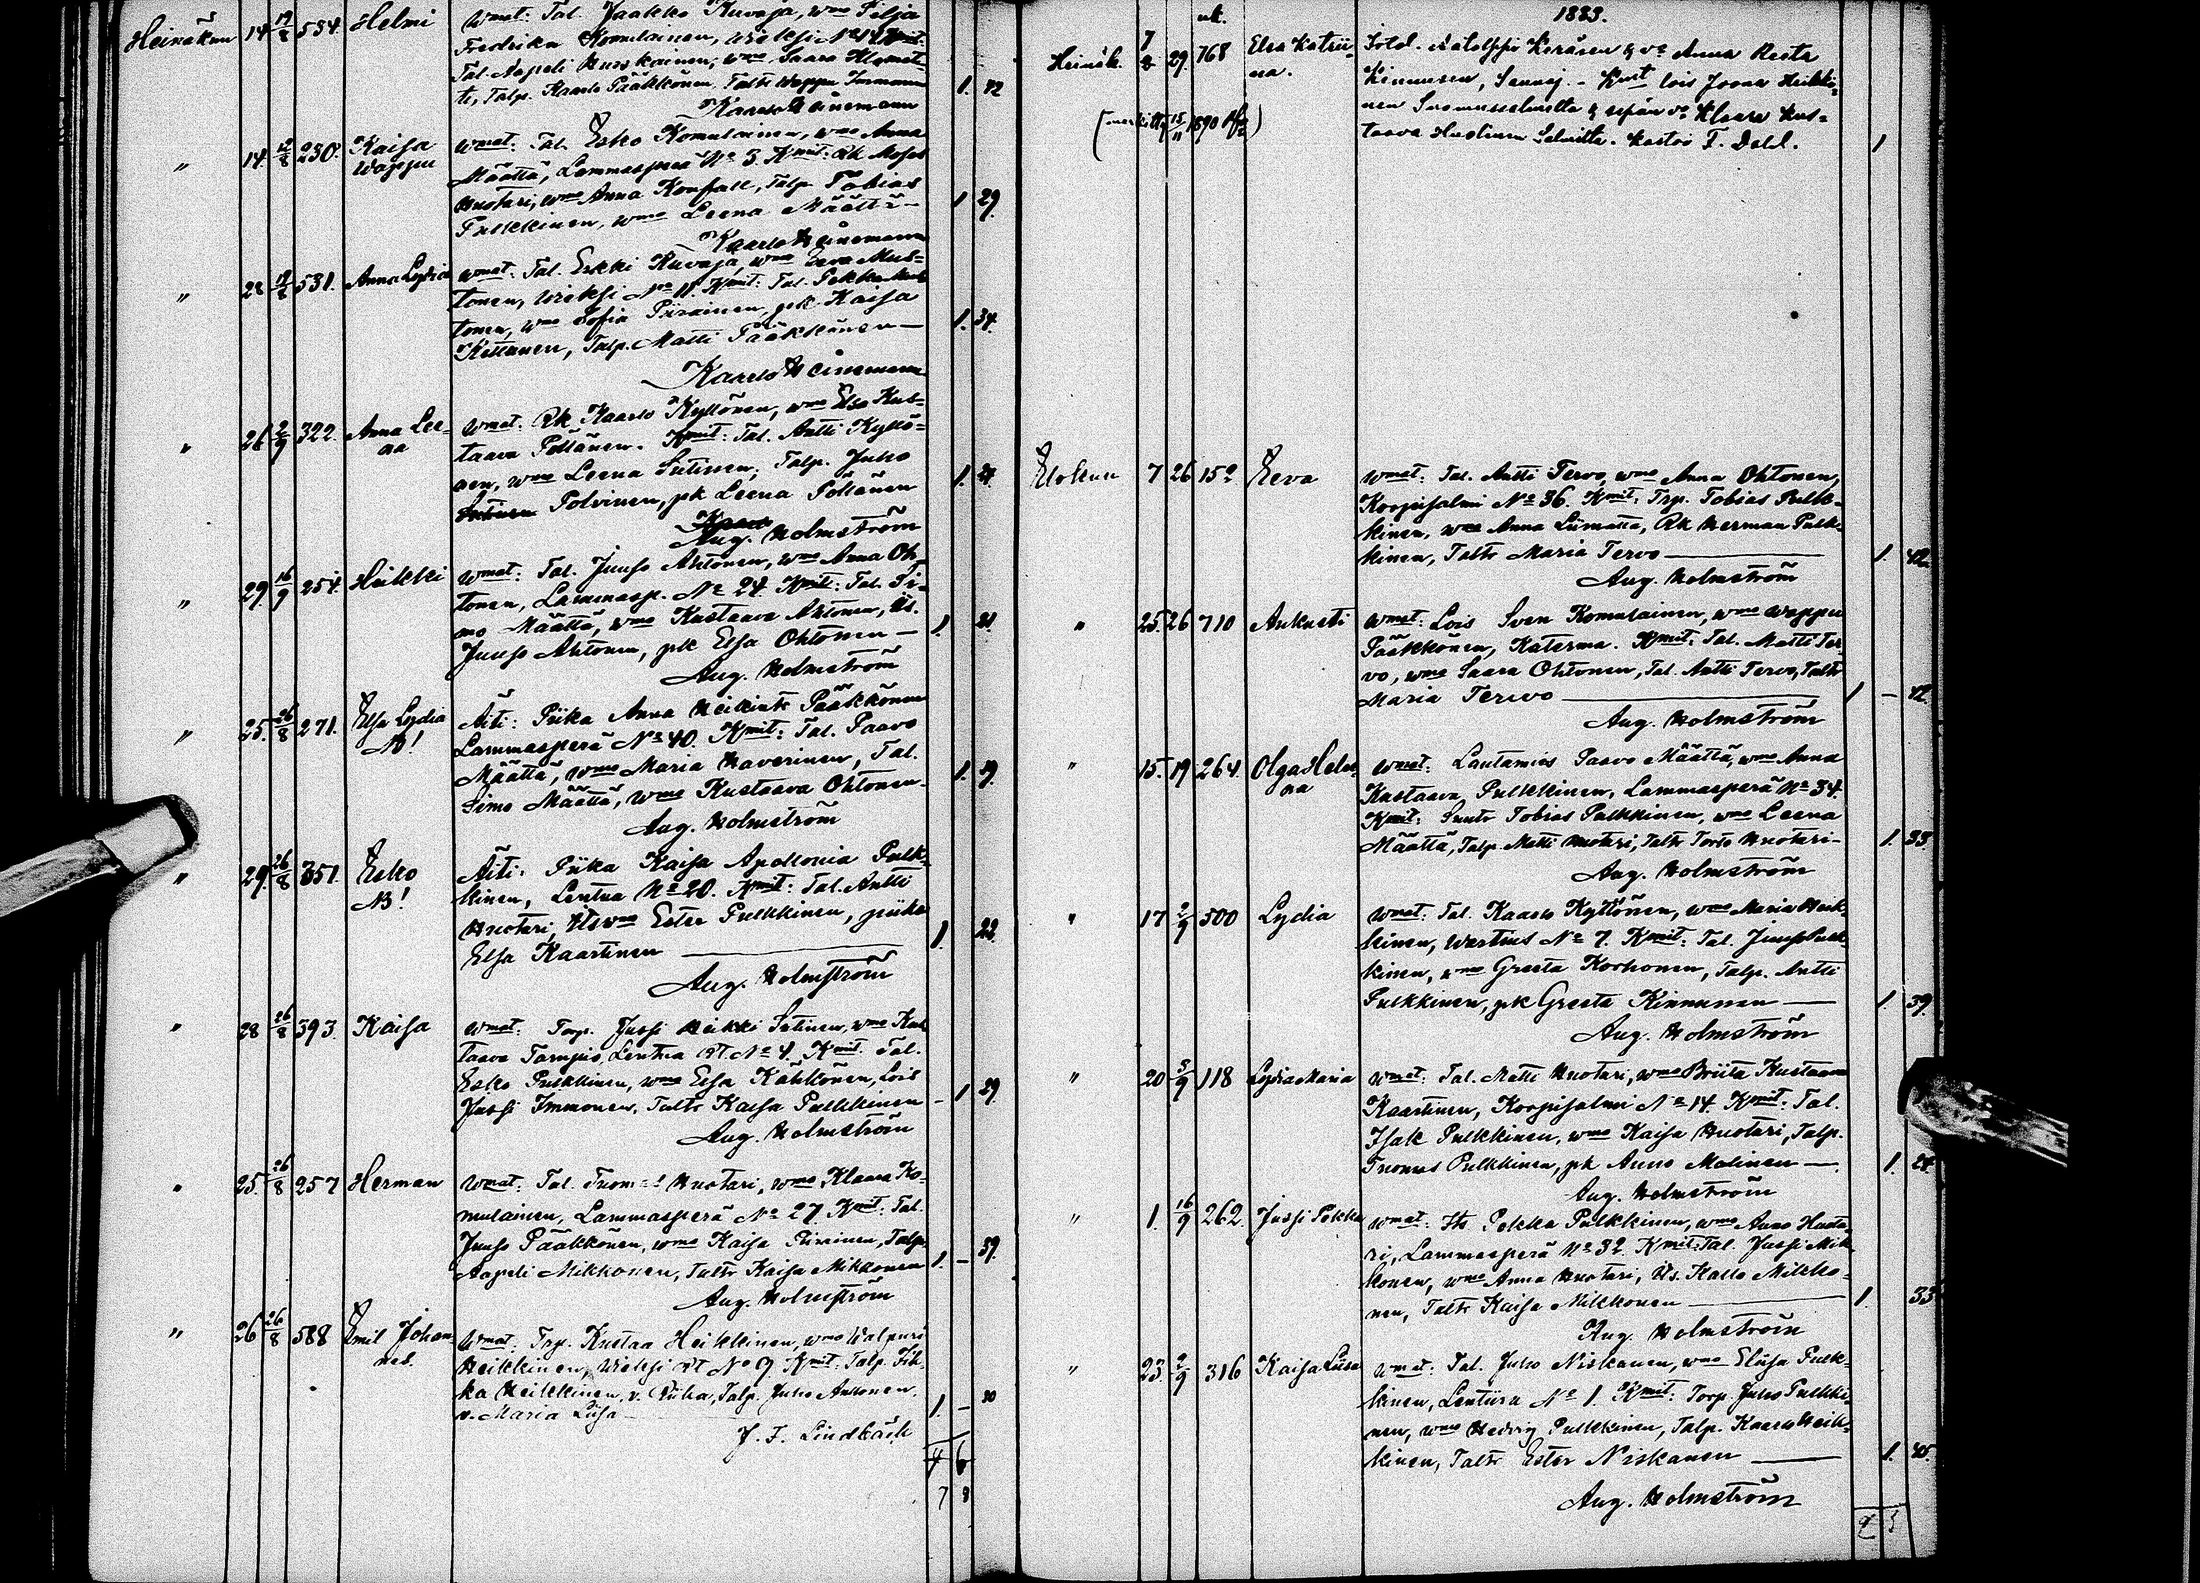 Heinäkuu 14 19/8 534. Helmi Wmat: Tal. Jaakko Kuvaja, wmo Silja
Fredrika Komulainen, Wieksi No 19. Kmit:
Tal. Aapeli Huuskainen, wmo Saara Klemet-
ti, Talp. Kaarlo Pääkkönen, Taltr Wappu Immonen
1. 42
Kaarlo Heinemann
" 14. 19/8 230. Kaisa Wappu
Wmat: Tal. Esko Komulainen, wmo Anna
Määttä, Lammasperä No 3. Kmit: Rk Moses
Huotari, wmo Anna Konfall, Talp. Tobias
Pulkkinen, wmo Leena Määttä —
1 29.
Kaarlo Heinemann
" 28 19/8 531. Anna Lydia
Wmat: Tal. Erkki Kuvaja, wmo Eeva Mus-
tonen, Wieksi No 11. Kmit: Tal. Pekka Mus-
tonen, wmo Sofia Piirainen, pk Kaisa
Kettunen, Talp. Matti Pääkkönen —
1. 34.
Kaarlo Heinemann
" 26 2/9 322. Anna Lee-
na
Wmat. Rk Kaarlo Kyllönen, wmo Elsa Kus-
taava Pöllänen. Kmit: Tal. Antti Kyllö-
nen, wmo Leena Sutinen, Talp. Juho
Polvinen, pk Leena Pöllänen
1. 21.
Aug. Holmström
" 29. 16/9 254. Heikki
Wmat: Tal. Juuso Ahtonen, wmo Anna Oh-
tonen, Lammasp. No 24. Kmit: Tal. Si-
mo Määttä, wmo Kustaava Ahtonen, Its.
Juuso Ahtonen, pk Elsa Ohtonen —
1. 21.
Aug. Holmström
" 25. 26/8 271. Elsa Lydia
NB!
Äiti: Piika Anna Heikintr Pääkkönen
Lammasperä No 40. Kmit: Tal. Paavo
Määttä, wmo Maria Haverinen, Tal.
Simo Määttä, wmo Kustaava Ohtonen.
1. 19.
Aug. Holmström
" 29. 26/8 351. Esko
NB!
Äiti: Piika Kaisa Apollonia Pulk-
kinen, Lentua No 20. Kmit: Tal. Antti
Huotari, Its wmo Ester Pulkkinen, piika
Elsa Kaartinen —
1. 22.
Aug. Holmström
" 28 26/8 393. Kaisa
Wmat: Torp. Jussi Heikki Sutinen, wmo Kus-
taava Tampio, Lentua RT No 4. Kmit. Tal.
Esko Pulkkinen, wmo Elsa Kähkönen, Lois
Jussi Immonen, Taltr Kaisa Pulkkinen
- 1 39.
Aug. Holmström
" 25. 26/8 257 Herman
Wmat: Tal. Tuomas Huotari, wmo Klaara Ko-
mulainen, Lammasperä No 27. Kmit: Tal.
Juuso Pääkkönen, wmo Kaisa Piirainen, Talp.
Aapeli Mikkonen, Taltr Kaisa Mikkonen
1. - 39.
Aug. Holmström
" 26 26/8 588 Emil Johan-
nes.
Wmat: Trp. Kustaa Heikkinen, wmo Walpuri
Heikkinen, Wieksi RT No 9 Kmit. Talp. Iik-
ka Heikkinen, v. Riika, Talp. Juho Anttonen,
v. Maria Liisa
1. - 20
J. F. Lindbäck
4 6
7 8
uk. 1883.
Heinäk. 7/8 29. 768 Elsa Katrii-
na.
Itotal. Adolphi Keränen & vo Anna Reeta
Kinnunen, Saunaj. - Kmt lois Joonas Heikki-
nen Suomussalmelta & vo Klaara Kus-
taava Heikkinen Salmelta. kastoi F. Dahl.
1
(merkitty 15/11 1890)
Elokuu 7 26 152 Eeva
Wmat: Tal. Antti Tervo, wmo Anna Ohtonen,
Korpisalmi No 36. Kmit: Trp. Tobias Pulk-
kinen, wmo Anna Liimatta, Rk Herman Pulk-
kinen, Taltr Maria Tervo —
1. 42.
Aug. Holmström
" 25. 26 710 Aukusti
Wmat: Lois Sven Komulainen, wmo Wappu
Pääkkönen, Katerma. Kmit: Tal. Matti Ter-
vo, wmo Saara Ohtonen, Tal. Antti Tervo, Taltr
Maria Terwo —
1 - 42.
Aug. Holmström
" 15. 19 264. Olga Hele-
na
Wmat: Lautamies Paavo Määttä, wmo Anna
Kustaava Pulkkinen, Lammasperä No 34.
Kmit: Suntr Tobias Pulkkinen, wmo Leena
Määttä, Talp. Matti Huotari, Taltr Huotari -
1. 33.
Aug. Holmström
" 17 2/9 500 Lydia
Wmat: Tal. Kaarlo Kyllönen, wmo Maria Heik-
kinen, Wartius No 7. Kmit: Tal. Juuso Pulk-
kinen, wmo Greeta Korhonen, Talp. Antti
Pulkkinen, pk Greeta Kinnunen —
1. 39.
Aug. Holmström
" 20 3/9 118 Lydia Maria
Wmat: Tal. Matti Huotari, wmo Briita Kustaava
Kaartinen, Korpisalmi No 14. Kmit: Tal.
Isak Pulkkinen, wmo Kaisa Huotari, Talp.
Tuomas Pulkkinen, pk Anna Malinen —
1. 24.
Aug. Holmström
" 1. 16/9 262. Jussi Pekka
Wmat: Its Pekka Pulkkinen, wmo Anna Huota-
ri, Lammasperä No 32. Kmit: Tal. Jussi Mik-
konen, wmo Anna Huotari, Its. Kalle Mikko-
nen, Taltr Kaisa Mikkonen —
1. 33
Aug. Holmström
" 23. 2/9 316 Kaisa Liisa
Wmat: Tal. Juho Niskanen, wmo Eliisa Pulk-
kinen, Lentiira No 1. Kmit: Torp. Juho Pulkki-
nen, wmo Hedvig Pulkkinen, Talp. Kaarlo Heik-
kinen, Taltr Ester Niskanen —
1. 45.
Aug. Holmström
2 5